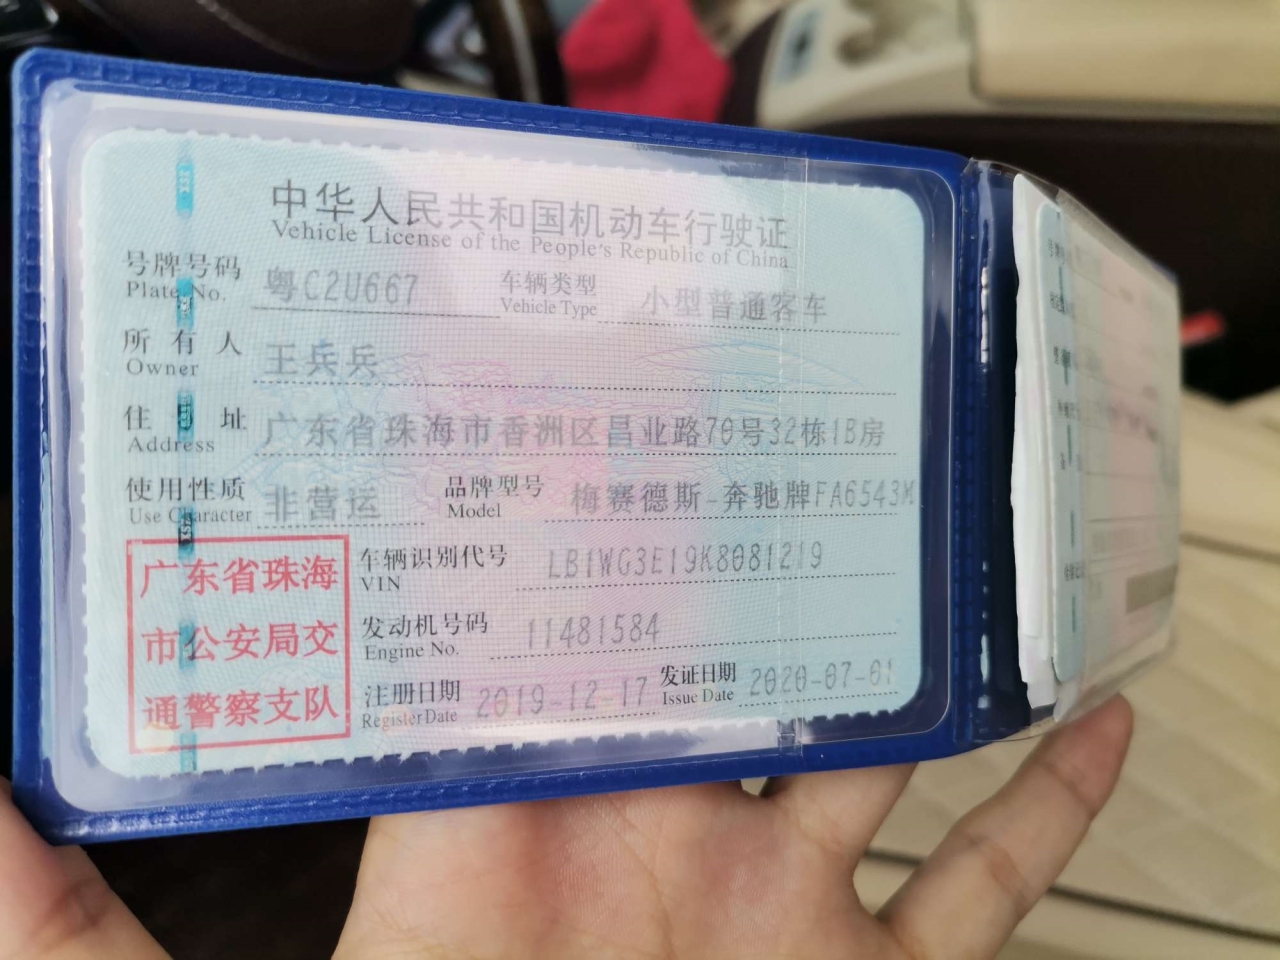 中华人民共和国机动车行驶证
Vehicle License of the People's Republic of China
号牌号码 粤C2U667 车辆类型 小型普通客车
Plate No. Vehicle Type
所有人 王兵兵
Owner
住址 广东省珠海市香洲区昌业路70号32栋1B房
Address
使用性质 非营运 品牌型号 梅赛德斯-奔驰牌FA6543M
Use Character Model
广东省珠海
市公安局交
通警察支队
车辆识别代号 LB1WG3E19K8081219
VIN
发动机号码 11481584
Engine No.
注册日期 2019-12-17 发证日期 2020-07-01
Register Date Issue Date